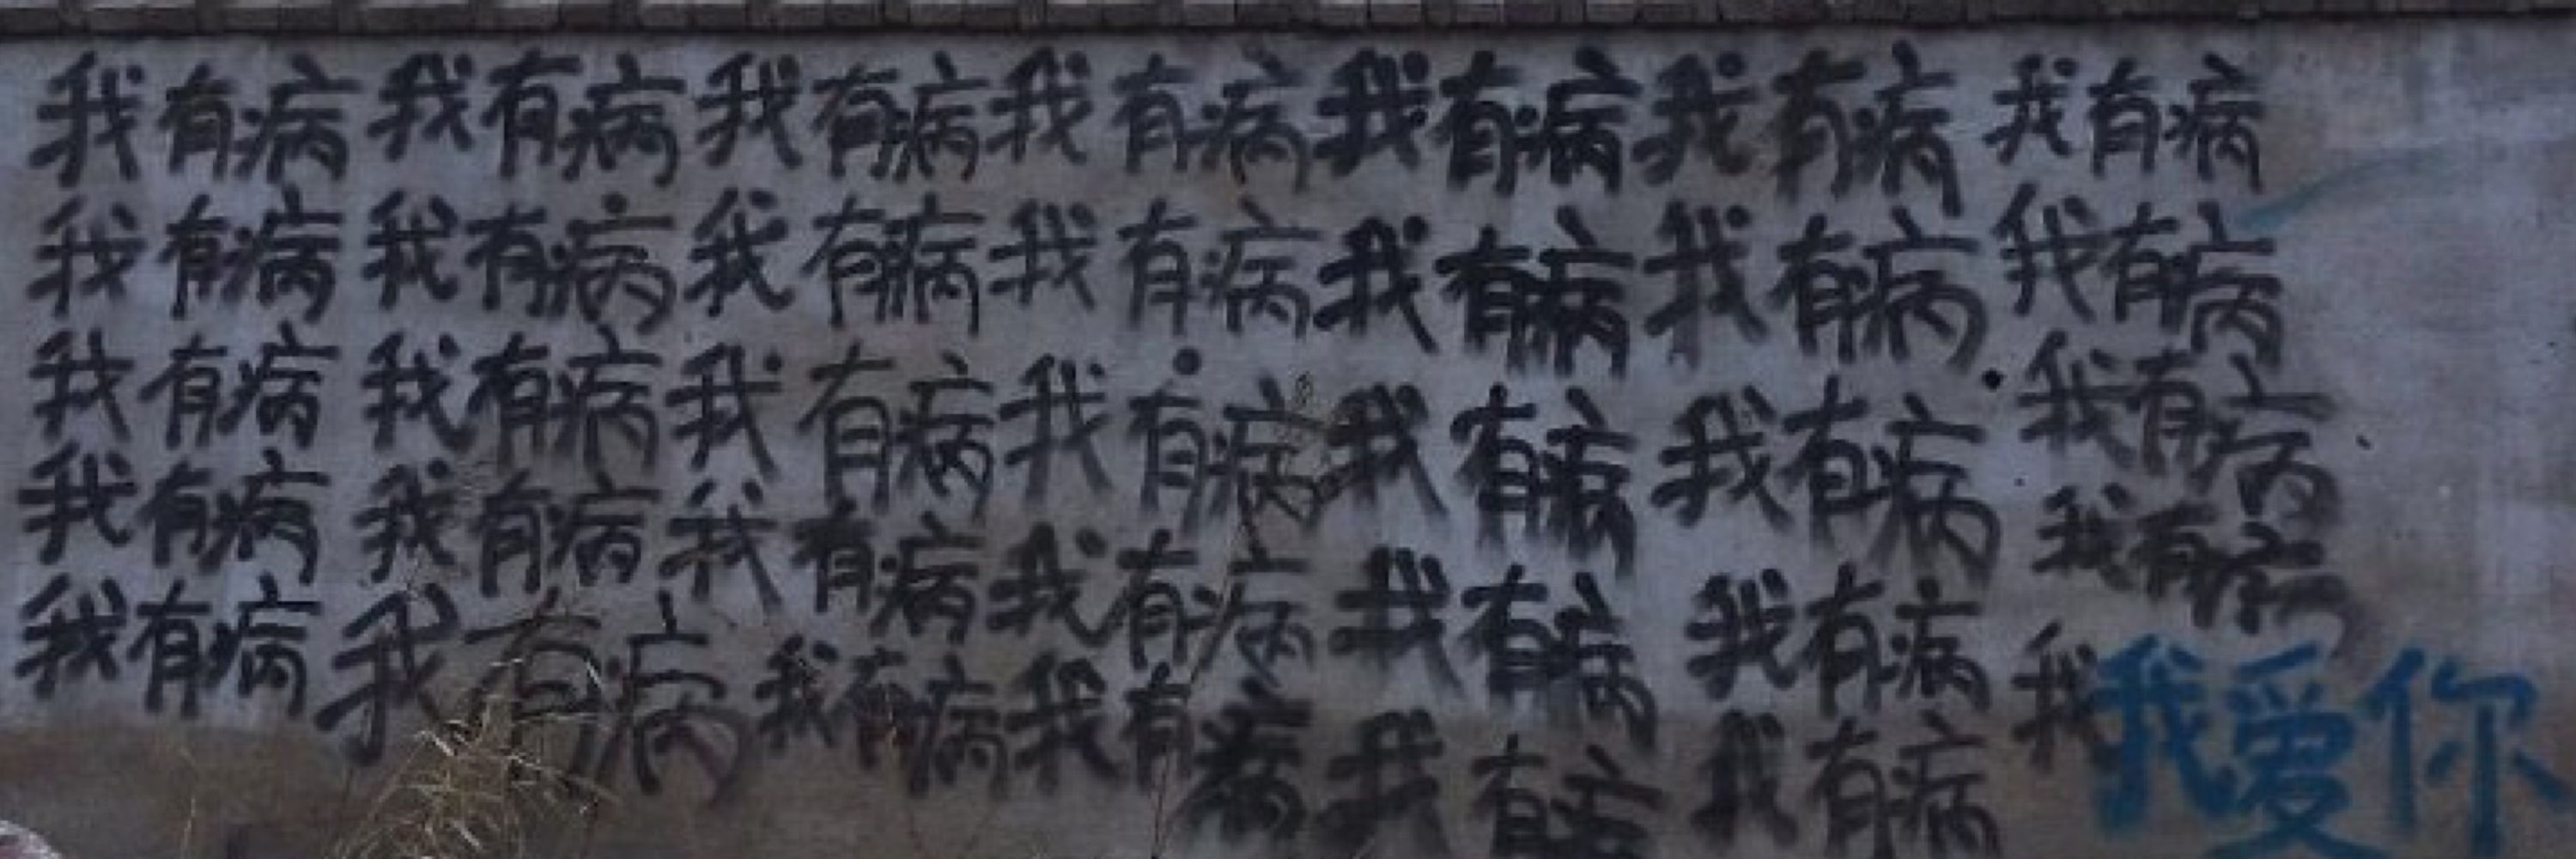 我有病我有病我有病我有病我有病我有病我有病
我有病我有病我有病我有病我有病我有病我有病
我有病我有病我有病我有病我有病我有病我有病
我有病我有病我有病我有病我有病我有病我有病
我有病我有病我有病我有病我有病我有病我我爱你